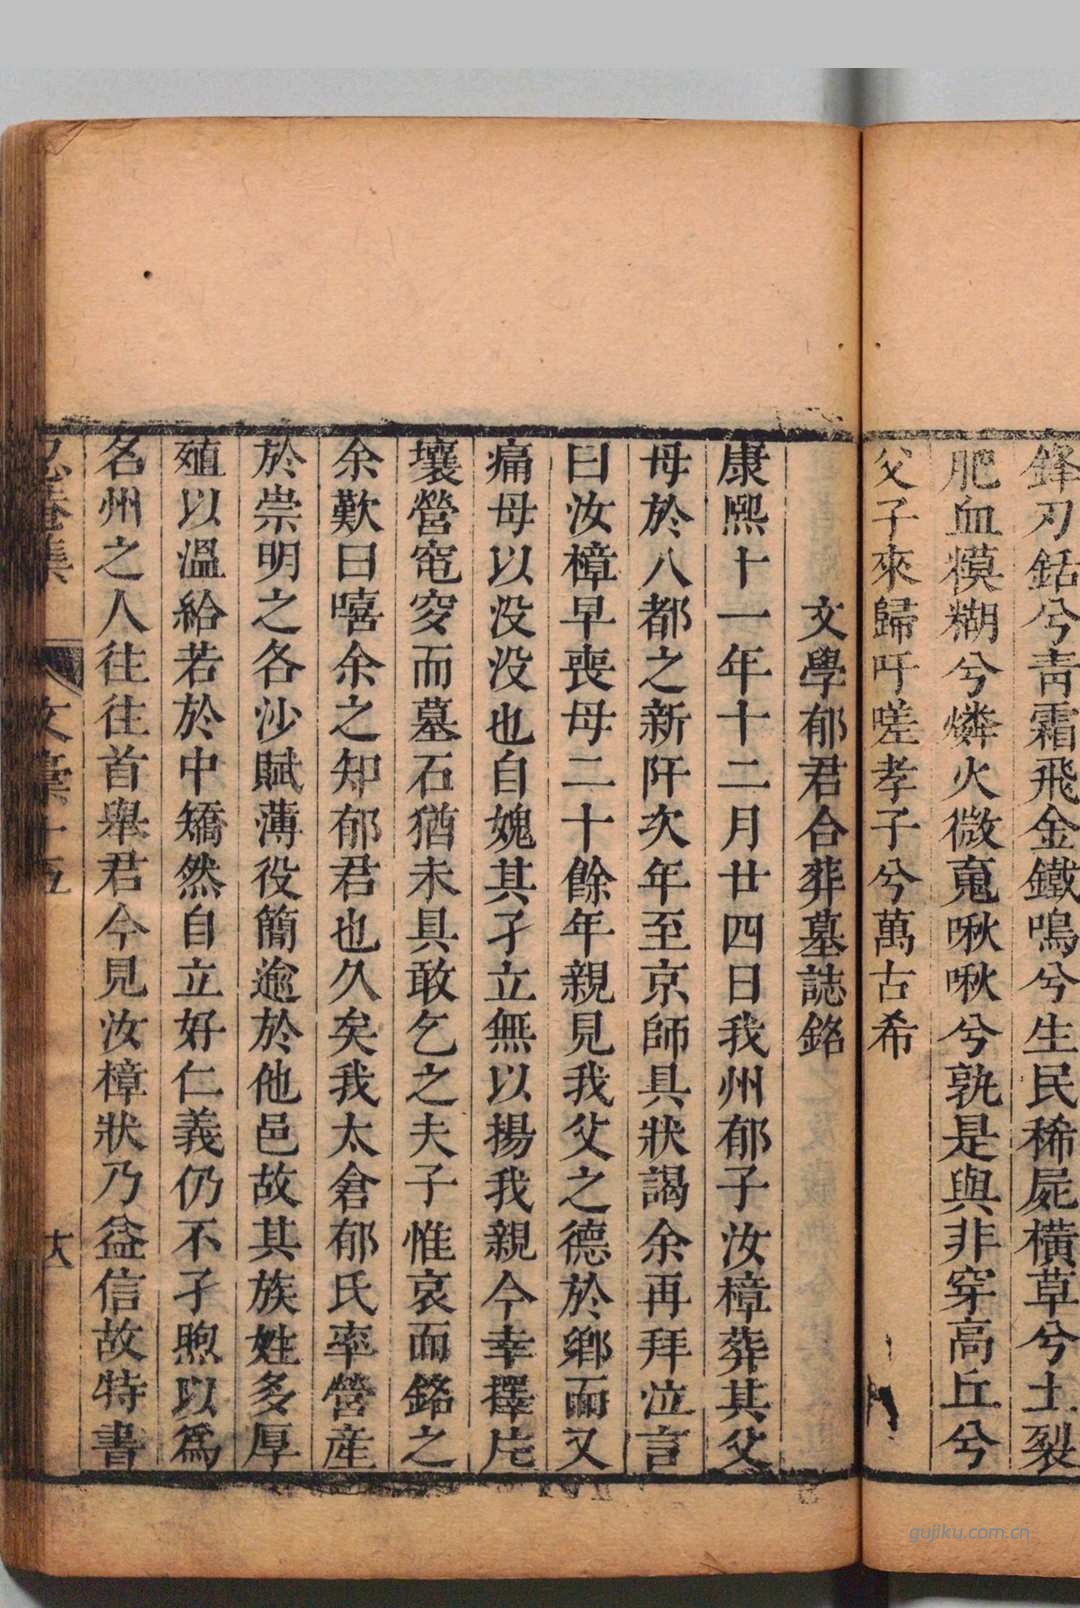 鋒刃銛兮靑霜飛金鐵鳴兮生民稀屍橫草兮土裂
肥血糢糊兮燐火微䰟啾啾兮孰是與非穿高丘兮
父子來歸吁嗟孝子兮萬古希
文學郁君合葬墓誌銘
康熙十一年十二月廿四日我州郁子汝樟葬其父
母於八都之新阡次年至京師具狀謁余再拜泣言
曰汝樟早喪母二十餘年親見我父之德於鄉而又
痛母以没没也自媿其孑立無以揚我親今幸擇片
壤營窀穸而墓石猶未具敢乞之夫子惟哀而銘之
余歎曰嘻余之知郁君也久矣我太倉郁氏率營産
於崇明之各沙賦薄役簡逾於他邑故其族姓多厚
殖以溫給若於中矯然自立好仁義仍不孑煦以爲
名州之人往往首舉君今見汝樟狀乃益信故特書
忍菴集
文稾十五
gujiku.com.cn